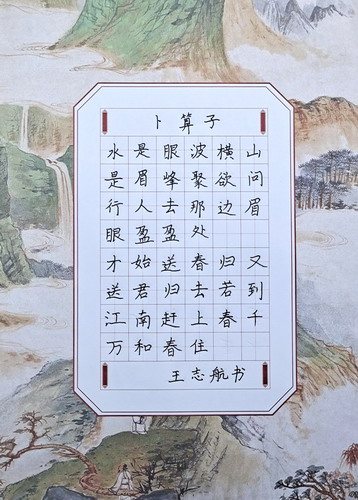 卜算子
水是眼波横山
是眉峰聚欲问
行人去那边眉
眼盈盈处
才始送春归又
送君归去若到
江南赶上春千
万和春住
王志航书